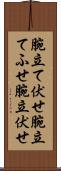 腕立て伏せ腕立
てふせ腕立伏せ